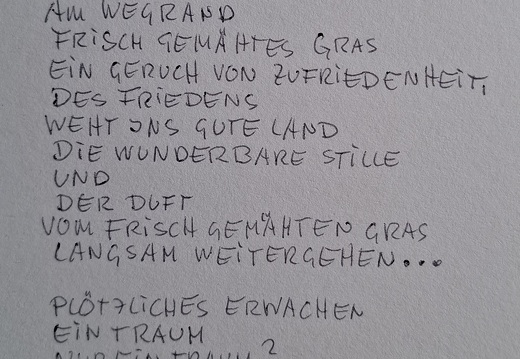 AM WEGRAND
FRISCH GEMÄHTES GRAS
EIN GERUCH VON ZUFRIEDENHEIT,
DES FRIEDENS
WEHT UNS GUTE LAND
DIE WUNDERBARE STILLE
UND
DER DUFT
VOM FRISCH GEMÄHTEN GRAS
LANGSAM WEITERGEHEN...
PLÖTZLICHES ERWACHEN
EIN TRAUM
NUR EIN TRAUM?